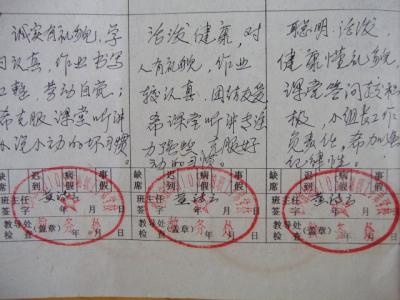 诚实有礼貌，学
习认真，作业书写
工整，劳动自觉；
希克服课堂听讲
小说小动的坏习惯。
活泼健康，对
人有礼貌，作业
较认真，团结友爱
希课堂听讲专注
力强些，克服好
动的习惯。
聪明、活泼
健康懂礼貌，
课堂答问较积
极，小组长工作
负责任，希加强
纪律性。
缺席 迟到 病假 事假
班主任签字 年 月 日
教导处检查 (盖章) 年 月 日
教务处
缺席 迟到 病假 事假
班主任签字 年 月 日
教导处检查 (盖章) 年 月 日
教务处
缺席 迟到 病假 事假
班主任签字 年 月 日
教导处检查 (盖章) 年 月 日
教务处